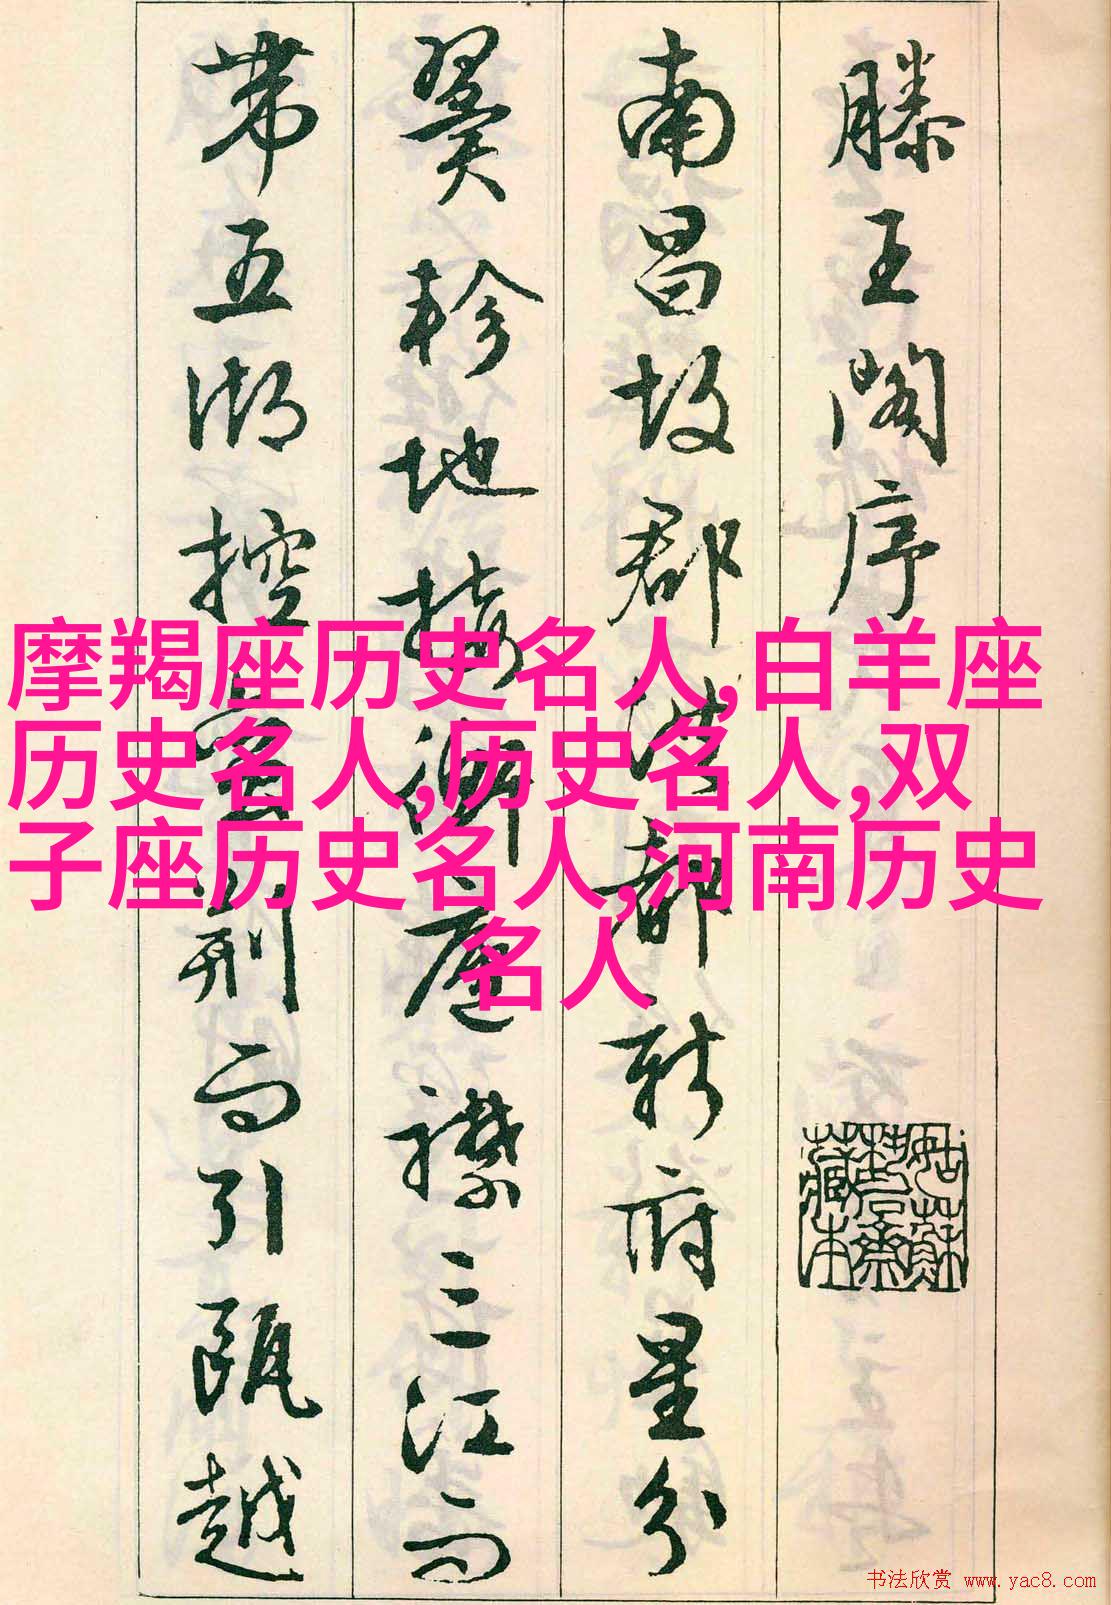 滕王閣序
南昌故郡洪都新府星分
翼軫地接衡廬襟三江而
帶五湖控蠻荆而引甌越
摩羯座历史名人,白羊座
历史名人,历史名人,双
子座历史名人,河南历史
名人
书法欣赏 www.yac8.com